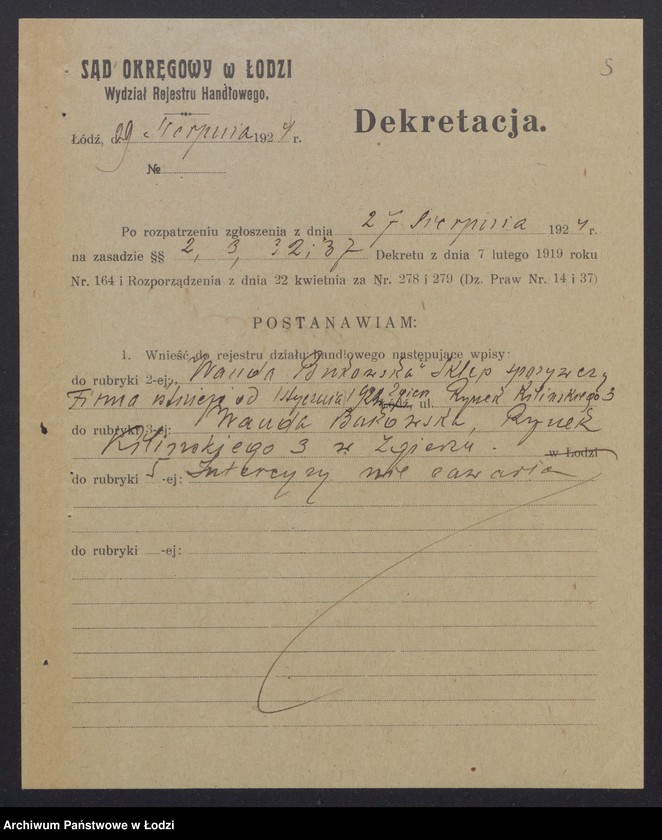 5
SĄD OKRĘGOWY w ŁODZI
Wydział Rejestru Handlowego.
Dekretacja.
Łódź, d. 29 Sierpnia 1924 r.
№
Po rozpatrzeniu zgłoszenia z dnia 27 Sierpnia 1924 r.
na zasadzie §§ 2, 3, 32 i 37 Dekretu z dnia 7 lutego 1919 roku
Nr. 164 i Rozporządzenia z dnia 22 kwietnia za Nr. 278 i 279 (Dz. Praw Nr. 14 i 37)
POSTANAWIAM:
1. Wnieść do rejestru działu handlowego następujące wpisy:
do rubryki 2-ej: „Wanda Bukowska" Sklep spożywczy
Firma istnieje od 1 stycznia ul. Rynek Kilińskiego 3
do rubryki 3-ej: Wanda Bukowska, Rynek
Kilińskiego 3 w Zgierzu. w Łodzi
do rubryki 5-ej: Intercyzy nie zawarła
do rubryki -ej:
Archiwum Państwowe w Łodzi